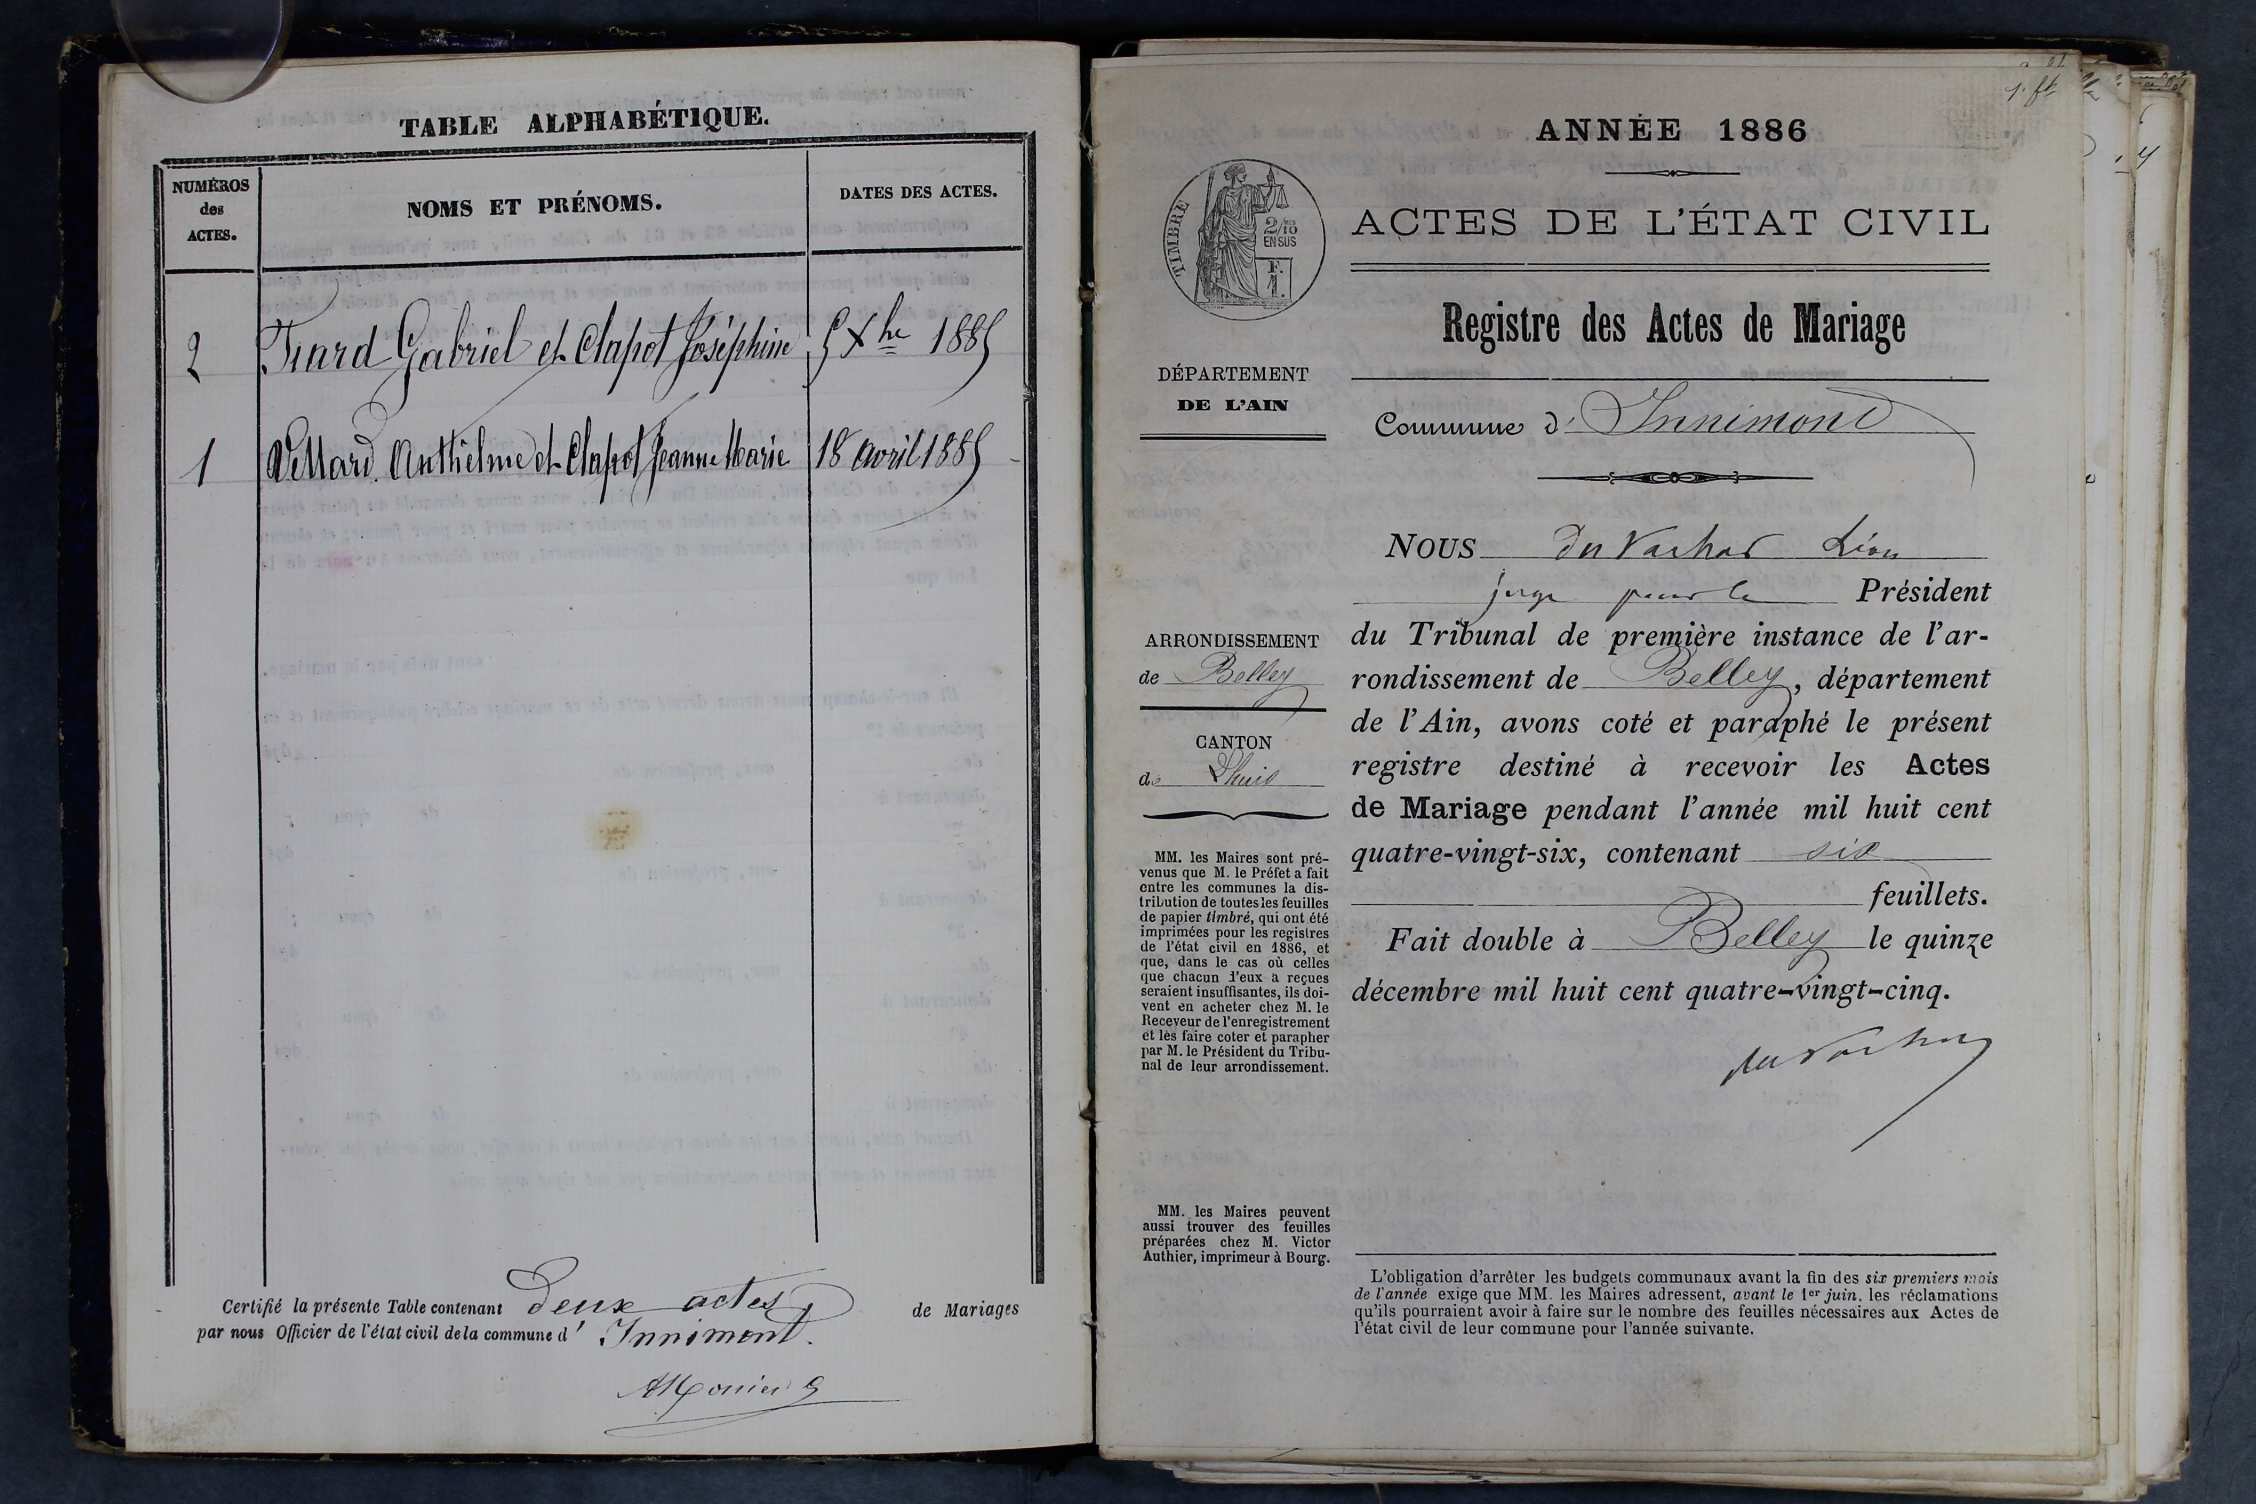 TABLE ALPHABÉTIQUE.
NUMÉROS
des
ACTES.
NOMS ET PRÉNOMS.
DATES DES ACTES.
2 Gabriel et Clapot Joséphine 5 Xbre 1885
1 Anthelme et Clapot Jeanne Marie 18 avril 1885
Certifié la présente Table contenant deux actes de Mariages
par nous Officier de l'état civil de la commune d' Innimont.
1. ft
ANNÉE 1886
TIMBRE
2/10
EN SUS
F.
1.
ACTES DE L'ÉTAT CIVIL
Registre des Actes de Mariage
DÉPARTEMENT
DE L'AIN
Commune d' Innimond
ARRONDISSEMENT
de Belley
CANTON
de Lhuis
MM. les Maires sont pré-
venus que M. le Préfet a fait
entre les communes la dis-
tribution de toutes les feuilles
de papier timbré, qui ont été
imprimées pour les registres
de l'état civil en 1886, et
que, dans le cas où celles
que chacun d'eux a reçues
seraient insuffisantes, ils doi-
vent en acheter chez M. le
Receveur de l'enregistrement
et les faire coter et parapher
par M. le Président du Tribu-
nal de leur arrondissement.
MM. les Maires peuvent
aussi trouver des feuilles
préparées chez M. Victor
Authier, imprimeur à Bourg.
NOUS Léon
juge pour le Président
du Tribunal de première instance de l'ar-
rondissement de Belley, département
de l'Ain, avons coté et paraphé le présent
registre destiné à recevoir les Actes
de Mariage pendant l'année mil huit cent
quatre-vingt-six, contenant six
feuillets.
Fait double à Belley le quinze
décembre mil huit cent quatre-vingt-cinq.
L'obligation d'arrêter les budgets communaux avant la fin des six premiers mois
de l'année exige que MM. les Maires adressent, avant le 1er juin, les réclamations
qu'ils pourraient avoir à faire sur le nombre des feuilles nécessaires aux Actes de
l'état civil de leur commune pour l'année suivante.